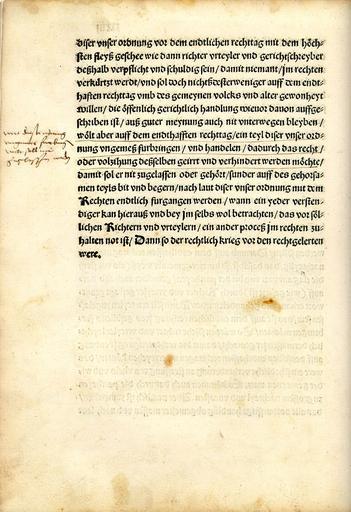 diser vnser ordnung vor dem endtlichen rechttag mit dem höch-
sten fleyß geschee wie dann richter vrteyler vnd gerichtschreyber
deßhalb verpflicht vnd schuldig sein / damit niemant / jm rechten
verkürtzt werdt / vnd sol doch nichtßdesterweniger auff dem endt-
hafften rechttag vmb des gemeynen volcks vnd alter gewonheyt
willen / die öffenlich gerichtlich handlung wieuor dauon auffge-
schriben ist / auß guter meynung auch nit vnterwegen bleyben /
wölt aber auff dem endthafften rechttag / ein teyl diser vnser ord-
nung vngemeß furbringen / vnd handeln / dadurch das recht /
oder volzihung desselben geirrt vnd verhindert werden möchte /
damit sol er nit zugelassen oder gehört / sunder auff des gehorsa-
men teyls bit vnd begern / nach laut diser vnser ordnung mit dem
Rechten endtlich furgangen werden / wann ein yeder versten-
diger kan hierauß vnd bey jm selbs wol betrachten / das vor söl-
lichen Richtern vnd vrteylern / ein ander proceß jm rechten zu-
halten not ist / Dann so der rechtlich krieg vor den rechtgelerten
were.